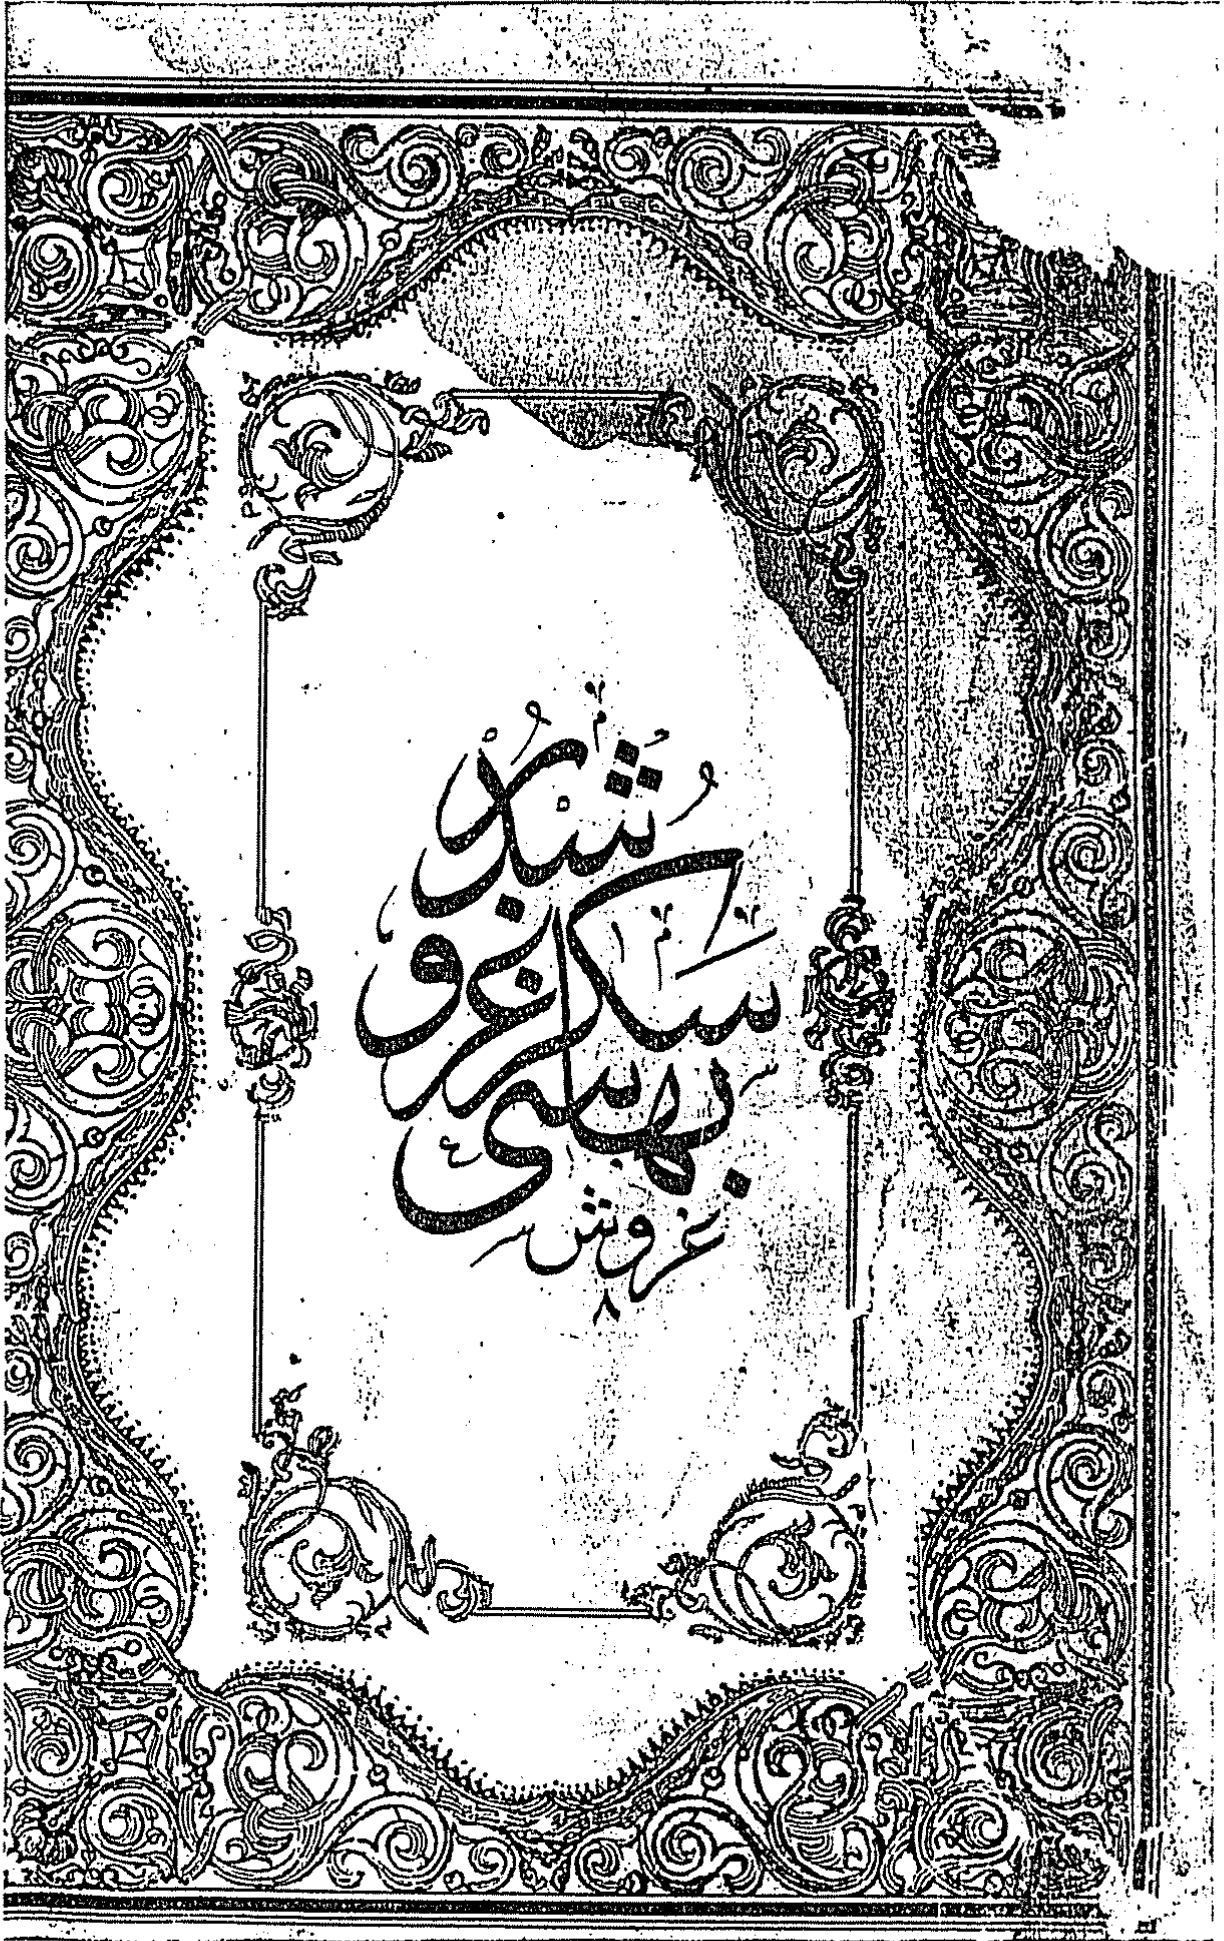 بهاسی سکز غروشدر
غروش
٨